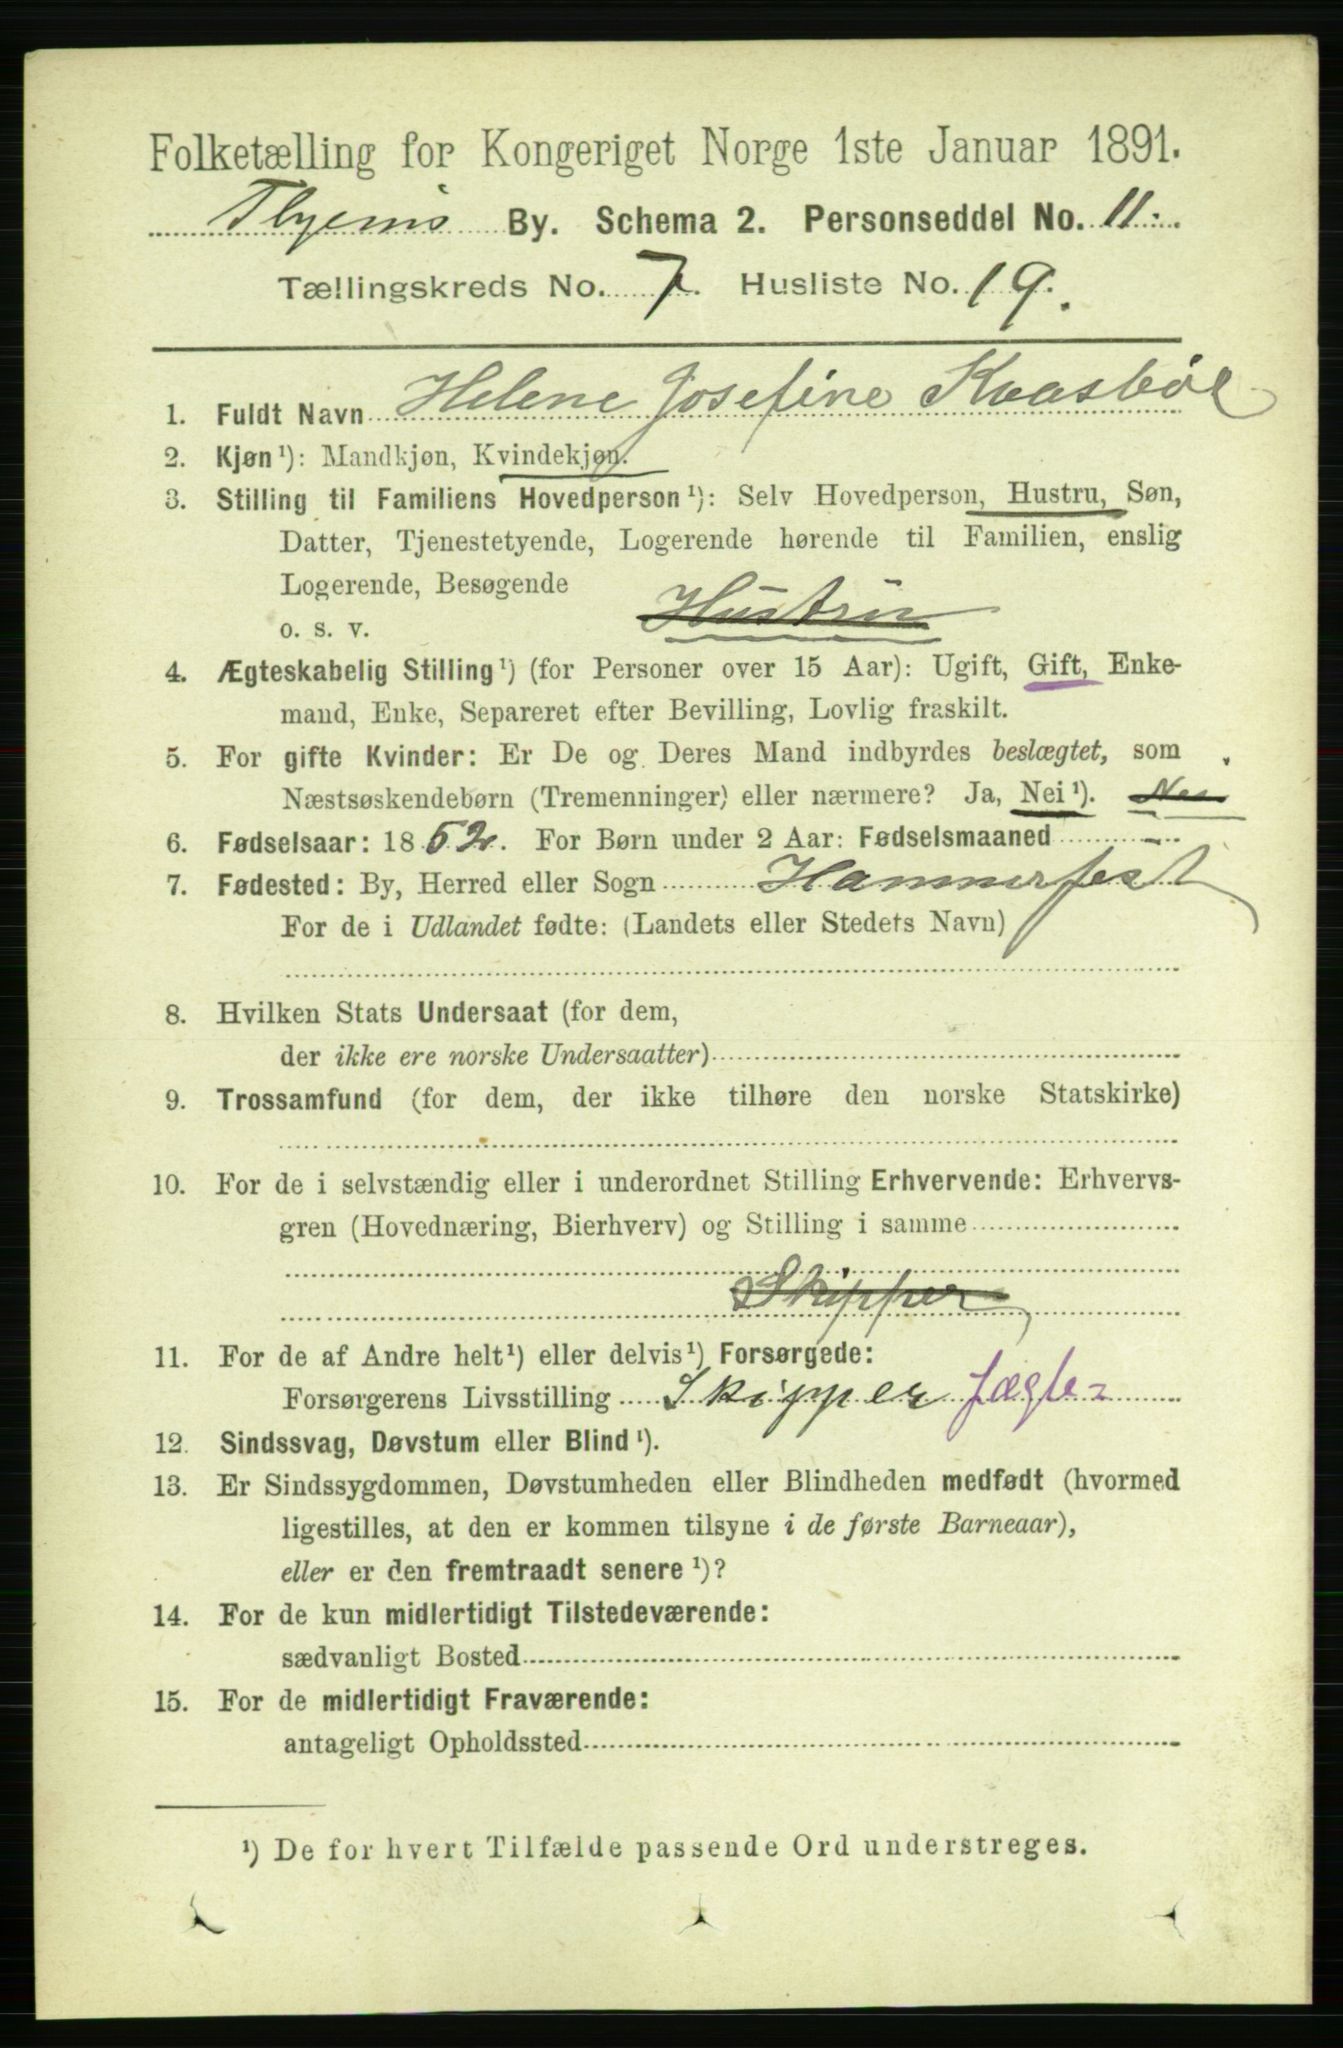 Folketælling for Kongeriget Norge 1ste Januar 1891.
By. Schema 2. Personseddel No. 11.
Tællingskreds No. 7. Husliste No. 19.
1. Fuldt Navn Helene Josefine Kvasbøl
2. Kjøn¹): Mandkjøn, Kvindekjøn.
3. Stilling til Familiens Hovedperson¹): Selv Hovedperson, Hustru, Søn,
Datter, Tjenestetyende, Logerende hørende til Familien, enslig
Logerende, Besøgende
o. s. v. Hustru
4. Ægteskabelig Stilling¹) (for Personer over 15 Aar): Ugift, Gift, Enke-
mand, Enke, Separeret efter Bevilling, Lovlig fraskilt.
5. For gifte Kvinder: Er De og Deres Mand indbyrdes beslægtet, som
Næstsøskendebørn (Tremenninger) eller nærmere? Ja, Nei¹). Nei
6. Fødselsaar: 1852. For Børn under 2 Aar: Fødselsmaaned
7. Fødested: By, Herred eller Sogn Hammerfest
For de i Udlandet fødte: (Landets eller Stedets Navn)
8. Hvilken Stats Undersaat (for dem,
der ikke ere norske Undersaatter)
9. Trossamfund (for dem, der ikke tilhøre den norske Statskirke)
10. For de i selvstændig eller i underordnet Stilling Erhvervende: Erhvervs-
gren (Hovednæring, Bierhverv) og Stilling i samme
Skipper
11. For de af Andre helt¹) eller delvis¹) Forsørgede:
Forsørgerens Livsstilling Skipper
12. Sindssvag, Døvstum eller Blind¹).
13. Er Sindssygdommen, Døvstumheden eller Blindheden medfødt (hvormed
ligestilles, at den er kommen tilsyne i de første Barneaar),
eller er den fremtraadt senere¹)?
14. For de kun midlertidigt Tilstedeværende:
sædvanligt Bosted
15. For de midlertidigt Fraværende:
antageligt Opholdssted
¹) De for hvert Tilfælde passende Ord understreges.